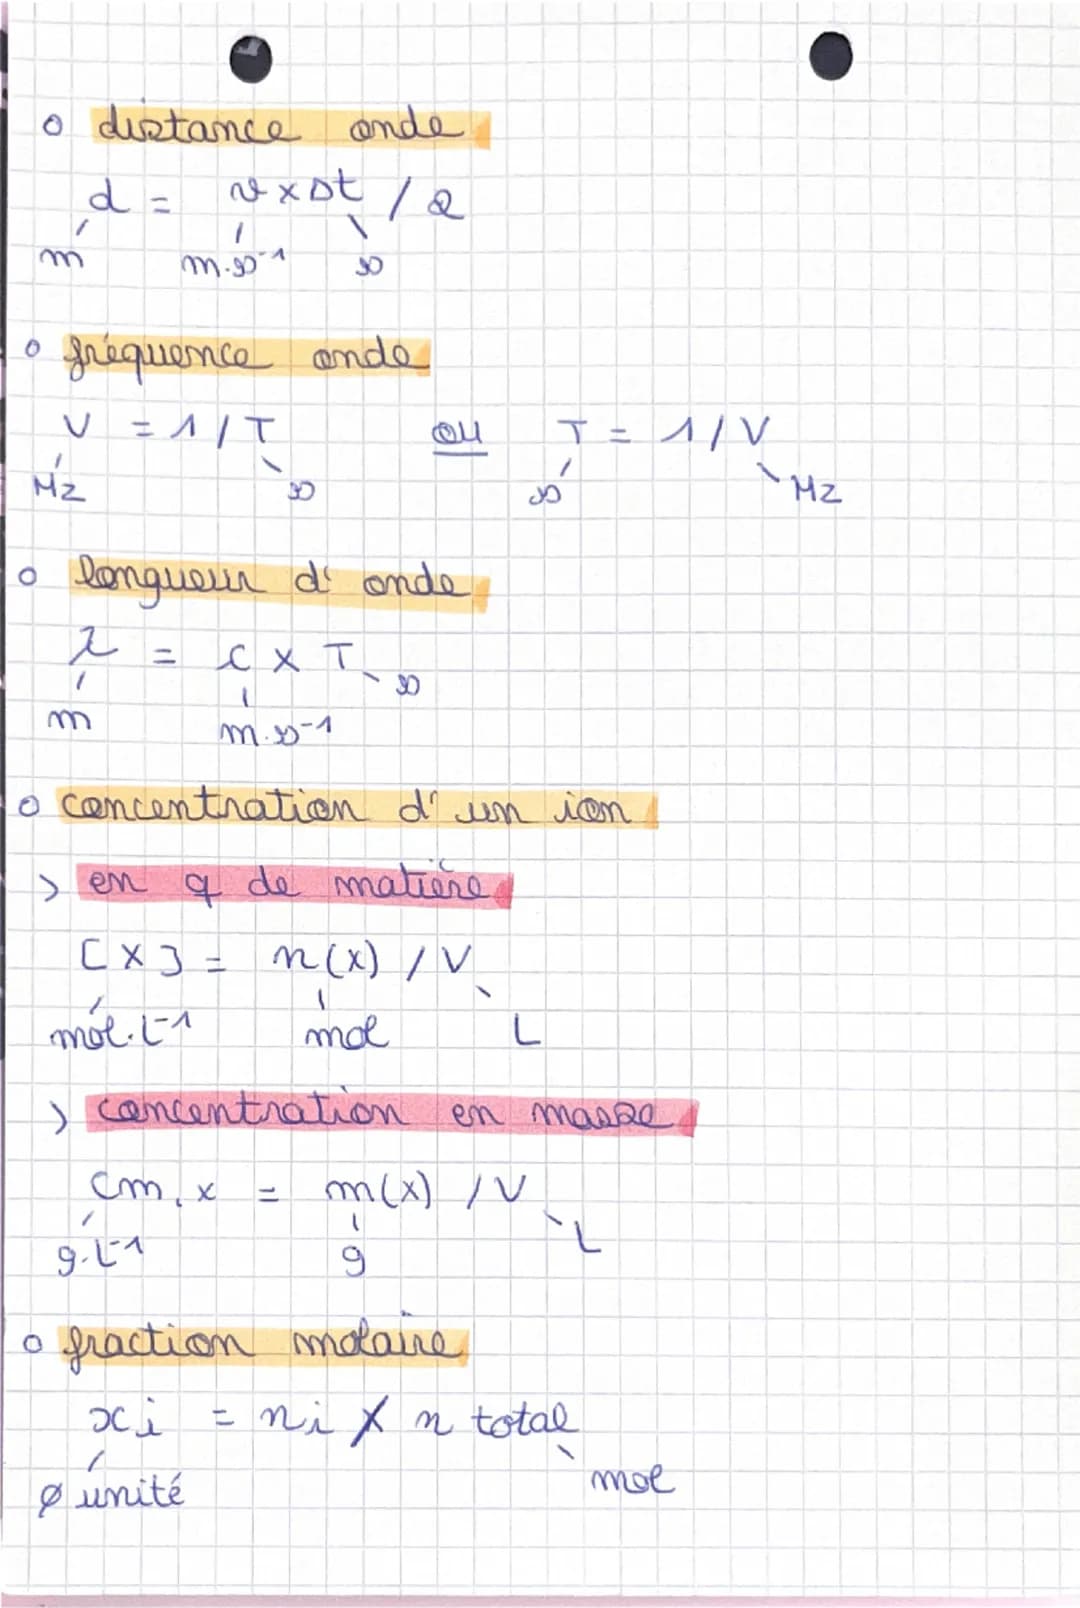 o distance onde
d = v x Δt / 2
m m.s⁻¹ s
o fréquence onde
ν = 1 / T ou T = 1 / ν
Hz s s Hz
o longueur d'onde
λ = c x T s
m m.s⁻¹
o concentration d'un ion
> en q de matière
[X] = n(x) / V
mol.L⁻¹ mol L
> concentration en masse
Cm, x = m(x) / V
g.L⁻¹ g L
o fraction molaire
xi = ni X n total
ø unité mol